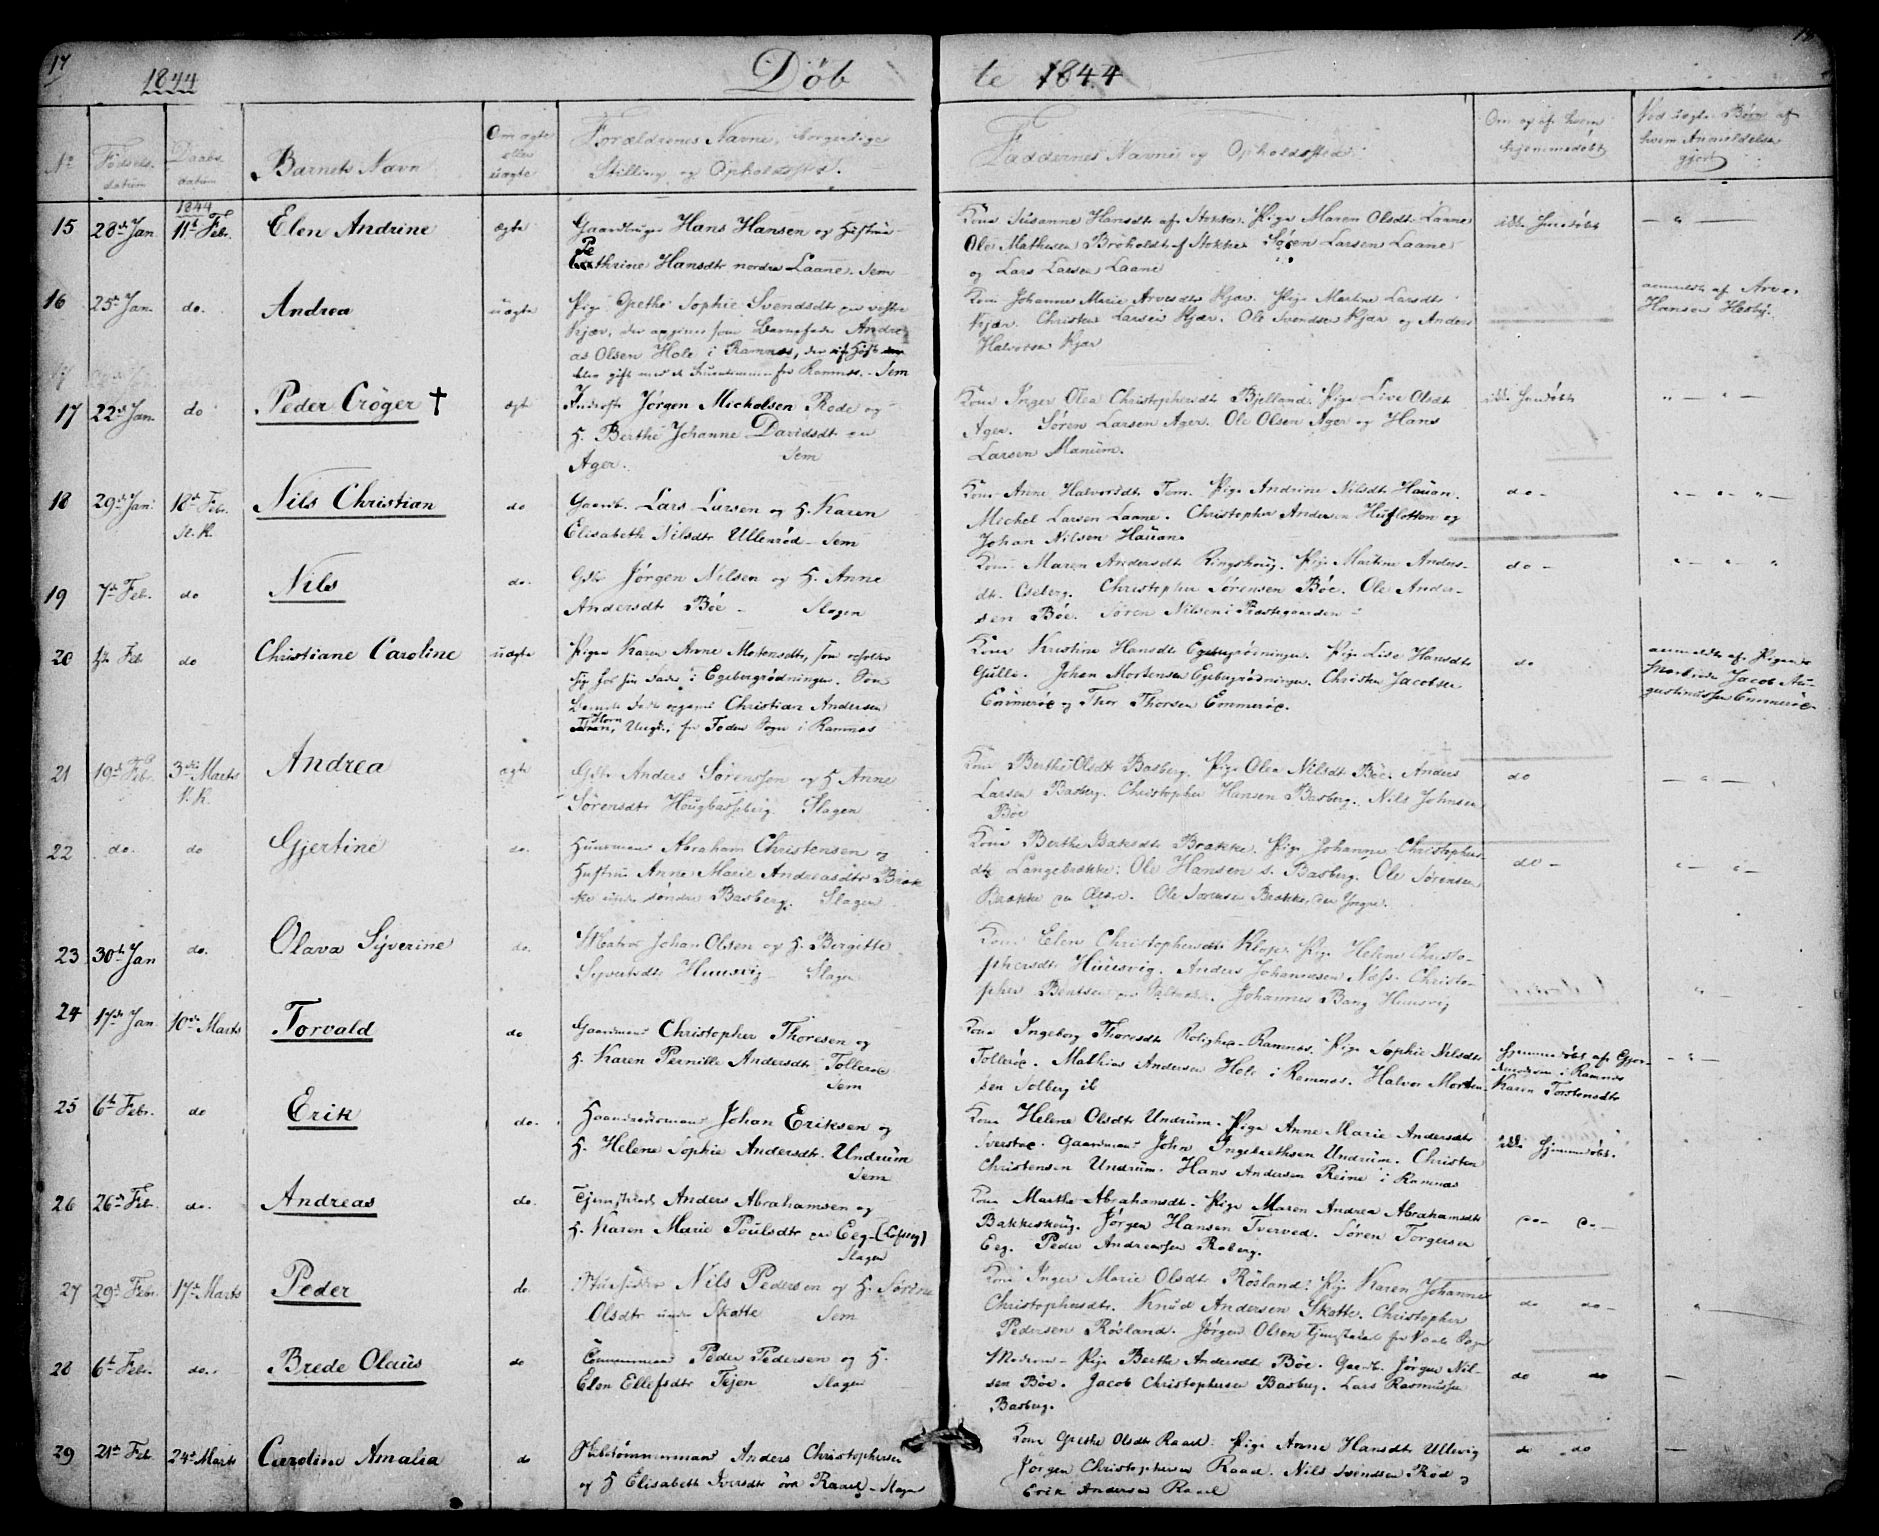 17
1844
Døb
te 1844
18
No
Fødsels
datum
Daabs
datum
Barnets Navn
Om ægte
eller
uægte
Forældrenes Navne, borgerlige
Stilling og Opholdssted.
Faddernes Navne og Opholdssted
Om og af hvem
hjemmedøbt
Ved uægte Børn af
hvem Anmeldelse
gjort
1844
15 28de Jan 11te Febr. Elen Andrine ægte Gaardbruger Hans Hansen og Hustrue
Cathrine Hansdtr nordre Laane. Sem
Kone Susanne Hansdt af Stokke. Pige Maren Olsdt. Laane
Ole Mathesen Broholdt af Stokke Søren Larsen Laane
og Lars Larsen Laane
ikke hjmdøbt
16 25de Jan. do. Andrea uægte Pige Grethe Sophie Svendsdt paa vestre
Kjær, der opgiver som Barnefader Andre
as Olsen Hole i Ramnæs,
Sem
Kone Johanne Marie Arvesdt Kjær. Pige Martine Larsdt
Kjær. Christen Larsen Kjær. Ole Svendsen Kjær og Anders
Halvorsen Kjær
anmeldt af Arve
Hansen Hesby.
17 22de Jan. do Peder Crøger † ægt Jørgen Michelsen Rode og
H. Berthe Johanne Davidsdt paa
Ager. Sem
Kone Inger Olea Christophersdt Bjelland. Pige Live Olsdt
Ager. Søren Larsen Ager. Ole Olsen Ager og Hans
Larsen Manum.
ikke hmdøbt
18 29de Jan. 18de Febr. Nils Christian do Gaardb. Lars Larsen og H. Karen
S. K. Elisabeth Nilsdtr Ullenrød - Sem
Kone Anne Halvorsdt Tem. Pige Andrine Nilsdt Hauan.
Michel Larsen Laane. Christopher Andersen Huflotten og
Johan Nilsen Hauan.
do -
19 7de Feb. do Nils do. Jørgen Nilsen og H. Anne
Andersdt Bøe - Slagen
Kone Maren Andersdt Ringshoug. Pige Martine Anders-
dt. Eseberg. Christopher Sørensen Bøe. Ole Ander-
sen Bøe. Søren Nilsen i Præstegaarden
do -
20 Feb do Christiane Caroline uægte Pigen Karen Anne Mortensdt, som opholder
sig hos sin Fader i Egebergrødningen. Som
Barnets Fader opgives Christian Andersen
Horn
Ungk., fra Foden Sogn i Ramnæs
Kone Kristine Hansdt Egebergrødningen. Pige Lise Hansdt
Gulli. Johan Mortensen Egebergrødningen. Christen Jacobsen
Emmerøe og Thor Thorsen Emmerøe.
do
anmeldt af Pigens
Morbroder Jacob Au-
gustinussen Emmerøe.
21 19de Febr. 3die Marts Andrea ægte Gstr Anders Sørensen og H. Anne
S. K. Sørensdtr Hougbasberg Slagen
Kone Berthe Olsdt Basberg. Pige Olea Nilsdt Bøe. Anders
Larsen Basberg. Christopher Hansen Basberg. Nils Johnsen
Bøe
do
22 do. do Gjertine do. Huusmand Abraham Christensen og
Hustru Anne Marie Andreasdtr Brek
ke under søndre Basberg. Slagen
Kone Berthe Baksdt Brække. Pige Johanne Christophers-
dtr Langebrække. Ole Hansen s. Basberg. Ole Sørensen
Brække paa Østre. Ole Sørensen Brække, den Yngre.
do -
23 30te Jan do. Olava Syverine do. Matros Johan Olsen og H. Bergitte
Syvertsdt Huusvig - Slagen
Kone Elen Christophersdt Klope. Pige Helene Christo-
phersdt Huusvig. Anders Johannesen Næss. Christo-
pher Bentsen. Johannes Bang Huusvig
24 17de Jan. 10de Marts Torvald do Gaardmand Christopher Thoresen og
H. Karen Pernille Andersdt Tollerøe
Sem
Kone Ingeborg Thoresdt Rolighed - Ramnæs. Pige Sophie Nilsdt
Tollerøe. Mathias Andersen Hole i Ramnæs. Halvor Morten-
sen Solberg ib
hjemmedøbt af Gjor-
demoderen i Ramnæs
Karen Torstensdtr
25 6te Febr. do Erik do. Gaardmand Johan Eriksen og
H. Helene Sophie Andersdt. Undrum
Sem
Kone Helene Olsdt Undrum. Pige Anne Marie Andersdt
Sverstøe. Gaardmand John Ingebrethsen Undrum. Christen
Christensen Undrum. Hans Andersen Reine i Ramnæs
ikke hjemmedøbt.
26 26de Feb. do. Andreas do. Tjenestekarl Anders Abrahamsen og
H. Karen Marie Poulsdtr paa Eeg -
Slagen
Kone Marthe Abrahamsdt. Pige Maren Andrea Abrahamsdt
Bakkeskoug. Jørgen Hansen Tverved. Søren Torgersen
Eeg. Peder Andreassen Roberg.
do - do -
27 29de Febr. 17de Marts Peder do. Nils Pedersen og H. Sørine
Olsdtr under Skatte Sem
Kone Inger Marie Olsdt Røsland. Pige Karen Johanne
Christophersdt. Knud Andersen Skatte. Christopher
Pedersen Røsland. Jørgen Olsen Tjenestekarl fra Vaale Sogn
do do -
28 6te Febr. do. Brede Olaus do Tømmermand Peder Pedersen og H.
Elen Ellefsdtr Tejen Slagen
Moderen - Pige Berthe Andersdt Bøe. Gaardb. Jørgen Nil-
sen Bøe. Jacob Christophersen Basberg. Lars Rasmussen
Basberg.
do do
29 21de Feb. 24de Marts Caroline Amalia do Skibstømmermand Anders Christophersen
og H Elisabeth Iversdt øvre Raael - Slagen
Kone Grethe Olsdt Raael. Pige Anne Hansdt Ullevig
Jørgen Christophersen Raael. Nils Svendsen Rød og
Erik Andersen Raael
do do